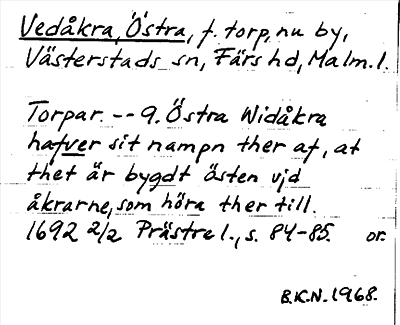 Vedåkra, Östra, f. torp, nu by,
Västerstads sn, Färs hd, Malm. l.
Torpar. -- 9. Östra Widåkra
hafver sit nampn ther af, at
thet är bygdt östen vjd
åkrarne, som höra ther till.
1692 2/2 Prästrel., s. 84-85. or.
B.K.N. 1968.